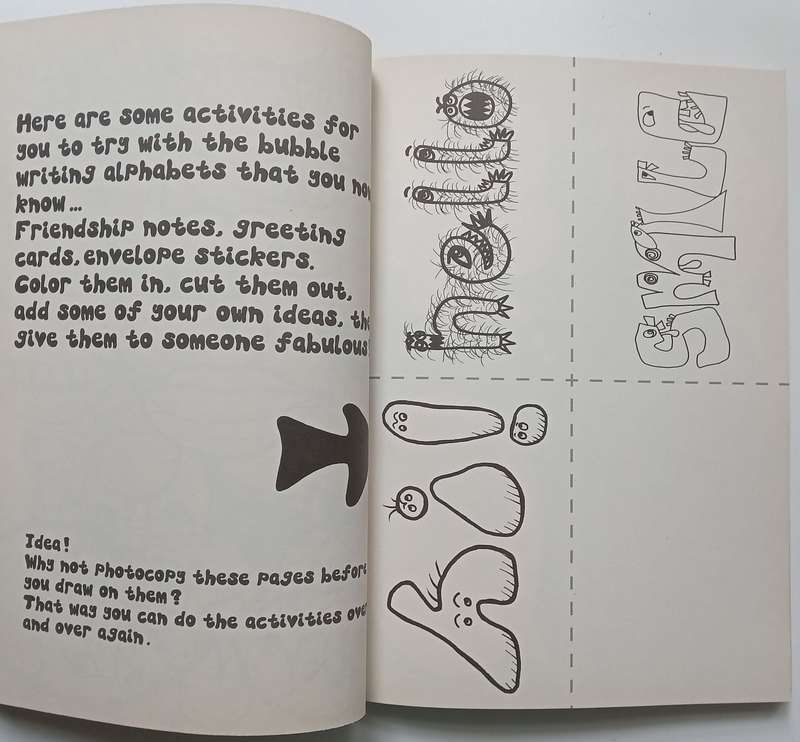 Here are some activities for
you to try with the bubble
writing alphabets that you now
know...
Friendship notes, greeting
cards, envelope stickers.
Color them in, cut them out,
add some of your own ideas,
give them to someone fabulous!
Idea!
Why not photocopy these pages before
you draw on them?
That way you can do the activities over
and over again.
hello
SMILE
hi!